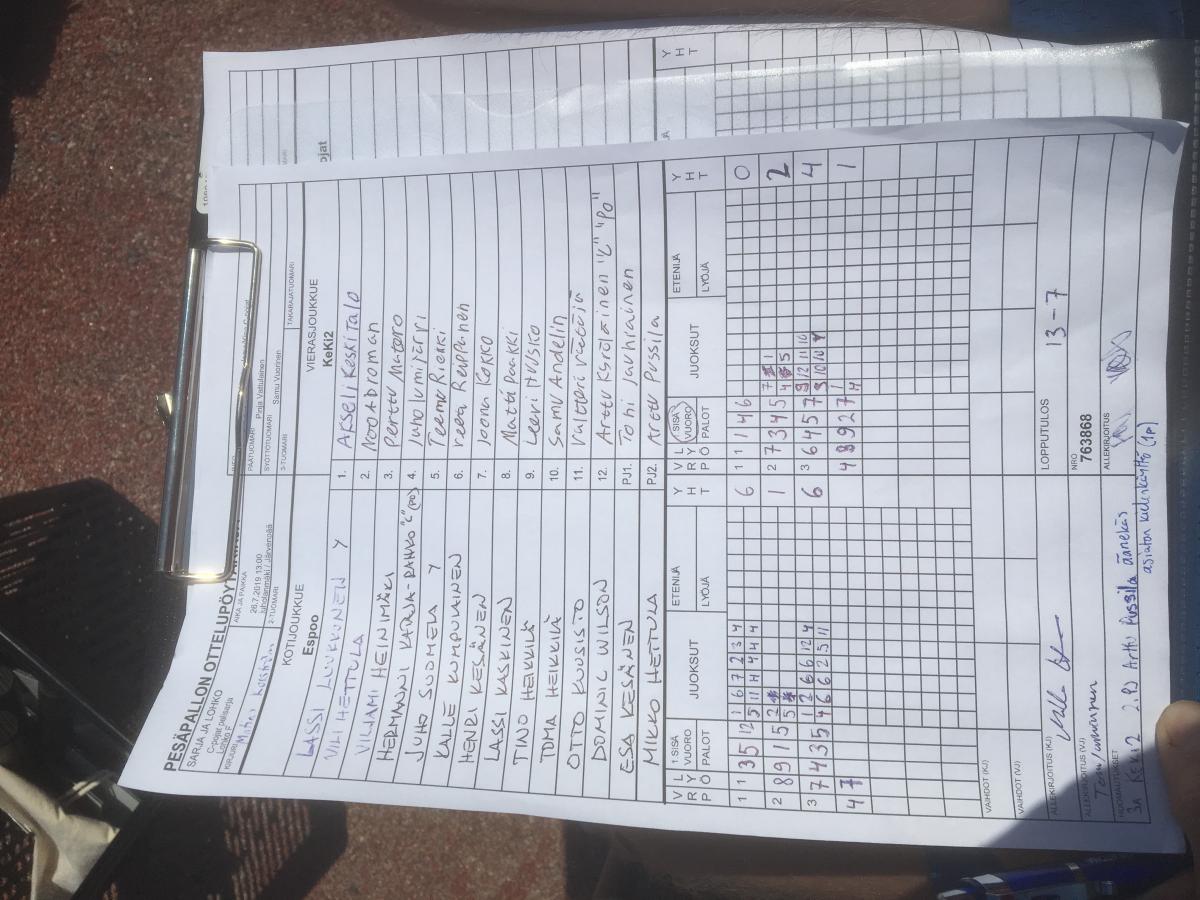 PESÄPALLON OTTELUPÖY
SARJA JA LOHKO
C-pojat
Lohko F
AIKA JA PAIKKA
26.7.2019 13.00
Juholanmäki / Järvenpää
PÄÄTUOMARI
Pinja Vattulainen
KIRJURI
2-TUOMARI
SYÖTTÖTUOMARI
Samu Vuorinen
3-TUOMARI
TAKARAJATUOMARI
KOTIJOUKKUE
Espoo
VIERASJOUKKUE
KeKi2
LASSI LUKKONEN Y 1. Akseli Keskitalo
VILI HETTULA 2. Noa Abroman
VILHAMI HEINIMÄKI 3. Perttu Matero
HERMANNI KARJA-RAHKO "L" (PO) 4. Juho Lumijärvi
JUHO SUOMELA Y 5. Teemu Rierki
KALLE KUMPULAINEN 6. Veera Reuppanen
HENRI KESÄNEN 7. Joona Kokko
LASSI KASKINEN 8. Matti Paakki
TINO HEIKKILÄ 9. Leevi Huusko
TOMA HEIKKILÄ 10. Samu Andelin
OTTO KUUSISTO 11. Valtteri
DOMINIC WILSON 12. Arttu Kyröläinen "L" "PO"
ESA KESÄNEN PJ1. Tomi Jauhiainen
MIKKO HETTULA PJ2. Arttu Pussila
VRP LYÖ 1 SISÄVUORO PALOT JUOKSUT ETENIJÄ LYÖJÄ YHT VRP LYÖ 1 SISÄVUORO PALOT JUOKSUT ETENIJÄ LYÖJÄ YHT
1 1 3 5 12 1 6 7 2 3 4 6 1 1 1 4 6 0
5 11 4 4 4 4
2 8 9 1 5 2 1 2 7 3 4 5 7 1 2
5 4 5
3 7 4 3 5 1 2 6 6 12 4 6 3 6 4 5 7 9 12 11 10 4
4 6 6 2 5 11 3 10 10 9
4 7 4 8 9 2 7 1 1
VAIHDOT (KJ)
VAIHDOT (VJ)
LOPPUTULOS 13-7
ALLEKIRJOITUS (KJ)
NRO
763868
ALLEKIRJOITUS (VJ)
ALLEKIRJOITUS
HUOMAUTUKSET
3A KeKi2 2.PJ Arttu Pussila äänekäs
asiaton kielenkäyttö (1p)